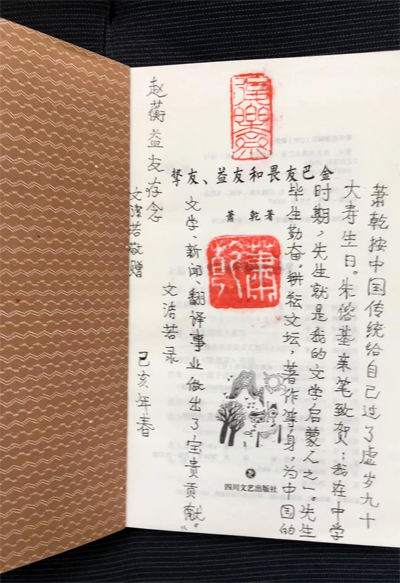 挚友、益友和畏友巴金
萧 乾 著
四川文艺出版社
萧乾按中国传统给自己过了虚岁九十
大寿生日。朱镕基亲笔致贺:"我在中学
时期,先生就是我的文学启蒙人之一"。先生
毕生勤奋,耕耘文坛,著作等身,为中国的
文学、新闻、翻译事业做出了宝贵贡献。
文洁若录
己亥年春
赵蘅益友存念
文洁若敬赠
萧乾